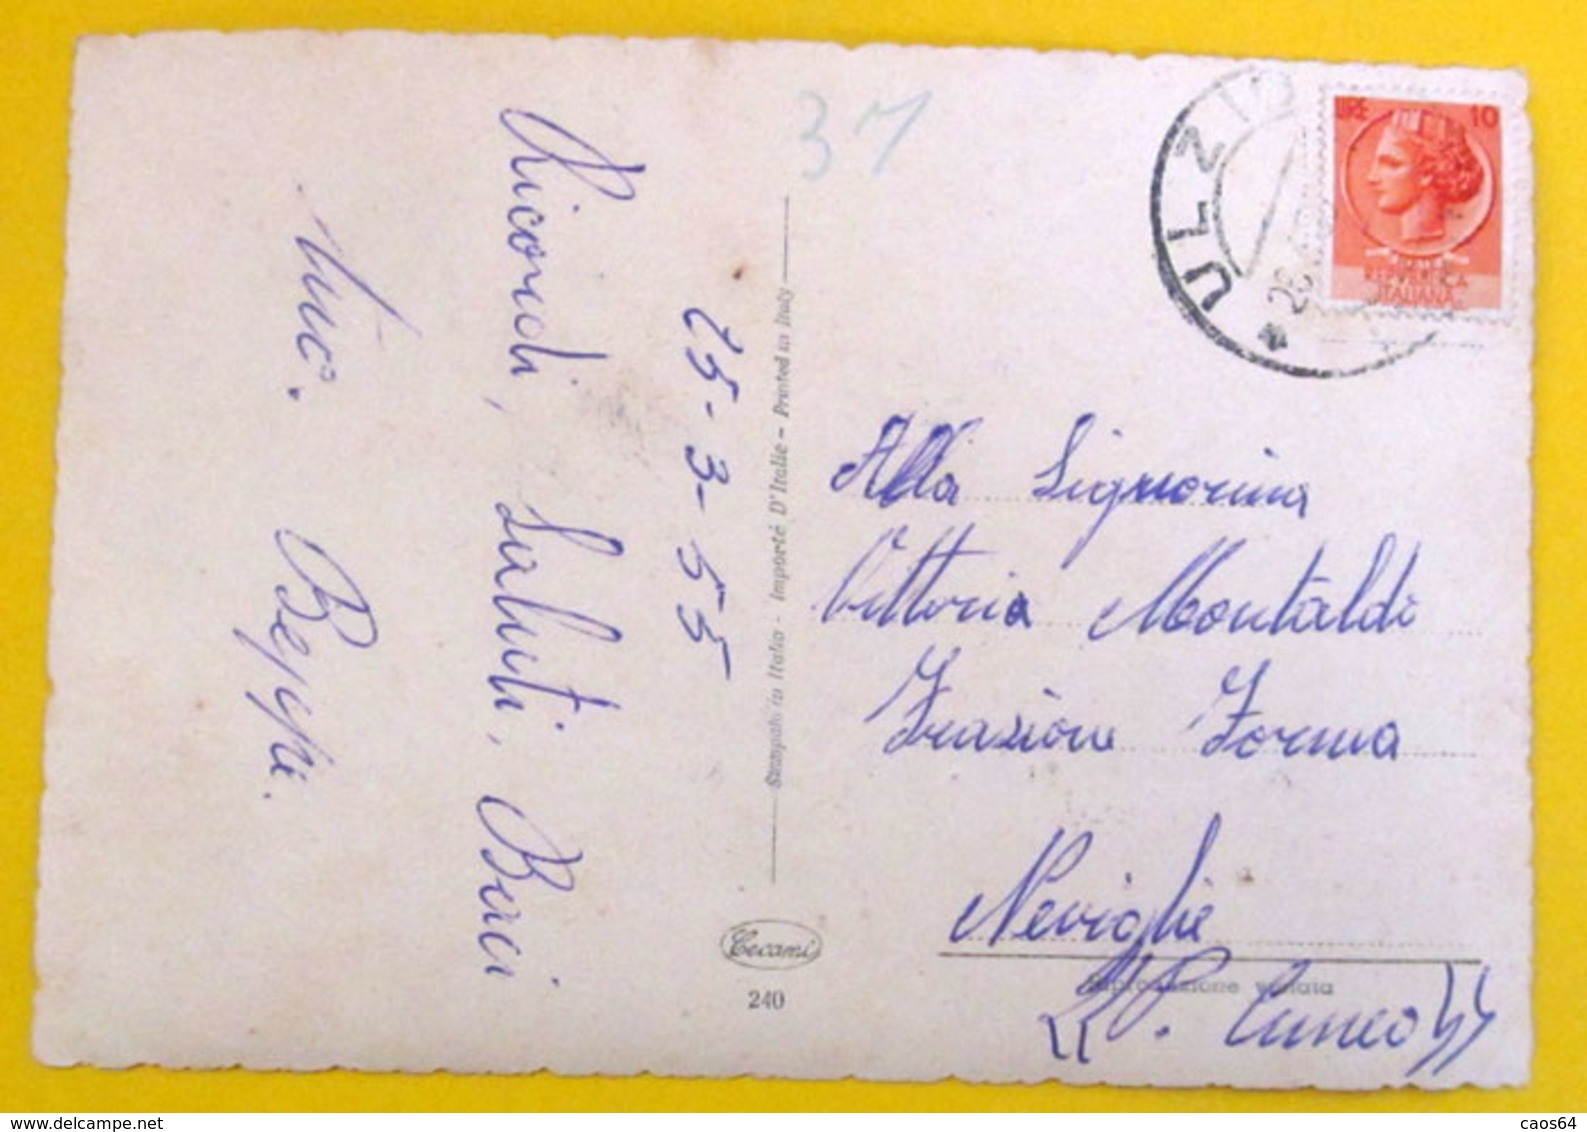 25-3-55
Ricordi, Saluti, Baci
tuo.
Beppe.
Stampato in Italia - Importé D'Italie - Printed in Italy
Cecami
240
37
ULZIO
26
LIRE 10
REPUBBLICA
ITALIANA
Alla Signorina
Vittoria Montaldo
Frazione Forma
Neviglie
Riproduzione vietata
((P. Cuneo))
delcampe.net
caos64